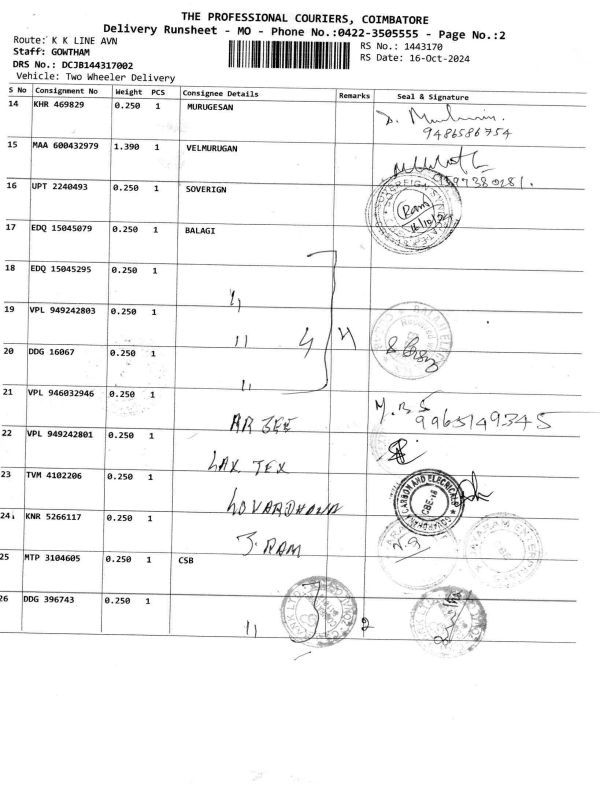 THE PROFESSIONAL COURIERS, COIMBATORE
Delivery Runsheet - MO - Phone No.:0422-3505555 - Page No.:2
Route: K K LINE AVN
Staff: GOWTHAM
DRS No.: DCJB144317002
Vehicle: Two Wheeler Delivery
RS No.: 1443170
RS Date: 16-Oct-2024
S No Consignment No Weight PCS Consignee Details Remarks Seal & Signature
14 KHR 469829 0.250 1 MURUGESAN
9486586754
15 MAA 600432979 1.390 1 VELMURUGAN
16 UPT 2240493 0.250 1 SOVERIGN
Ram
17 EDQ 15045079 0.250 1 BALAGI
18 EDQ 15045295 0.250 1
11
19 VPL 949242803 0.250 1
11 4 4
20 DDG 16067 0.250 1
11
21 VPL 946032946 0.250 1 M.B.S
AR ZEE 9965149345
22 VPL 949242801 0.250 1
LAX TEX
23 TVM 4102206 0.250 1
GOVARDHANA
CARBON AND ELECRICALS
CBE-18
24 KNR 5266117 0.250 1
J. RAM
25 MTP 3104605 0.250 1 CSB
26 DDG 396743 0.250 1
11 2